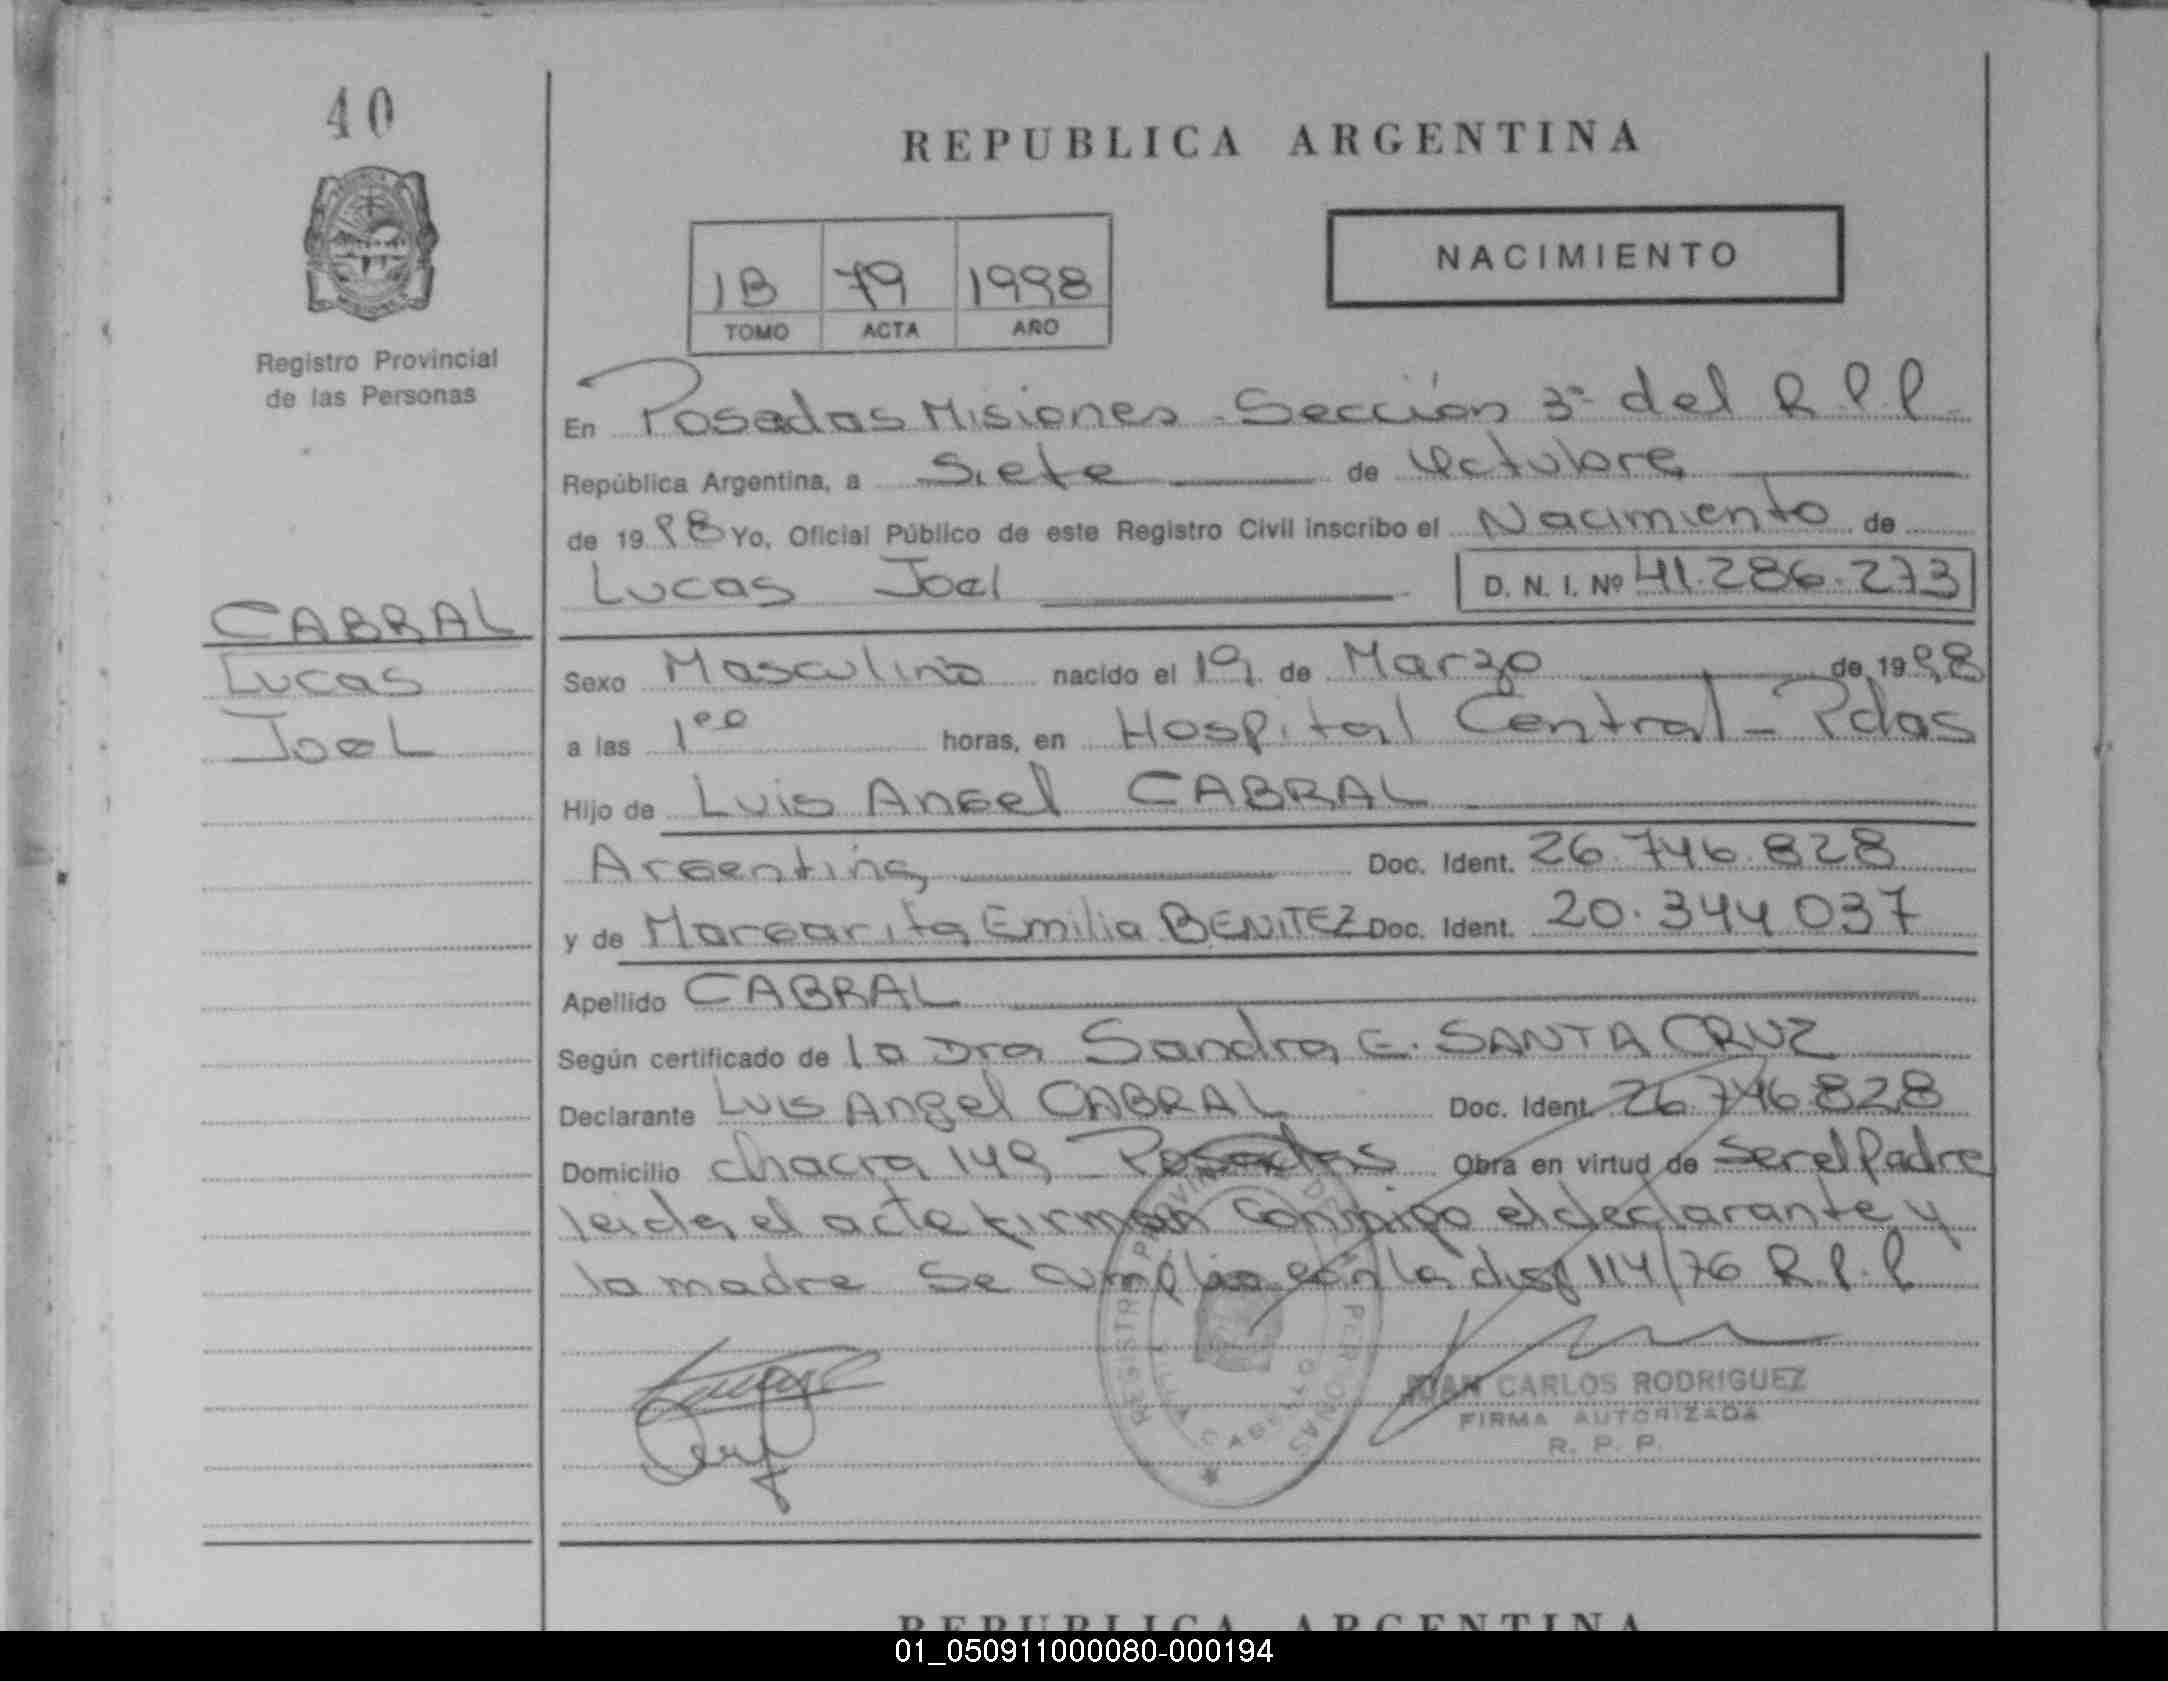 40
REPUBLICA ARGENTINA
NACIMIENTO
1B 79 1998
TOMO ACTA AÑO
Registro Provincial
de las Personas
En Posadas Misiones - Sección 3ª del R.P.P.
República Argentina, a Siete de Octubre
de 1998 Yo, Oficial Público de este Registro Civil inscribo el Nacimiento de
Lucas Joel D. N. I. Nº 41.286.273
CABRAL
Lucas
Joel
Sexo Masculino nacido el 19 de Marzo de 1998
a las 1 00 horas, en Hospital Central - Pdas
Hijo de Luis Angel CABRAL
Argentina Doc. Ident. 26.746.828
y de Margarita Emilia BENITEZ Doc. Ident. 20.344.037
Apellido CABRAL
Según certificado de la Dra Sandra E. SANTA CRUZ
Declarante Luis Angel CABRAL Doc. Ident. 26.746.828
Domicilio chacra 149 - Posadas Obra en virtud de ser el Padre
leida el acta firman conmigo el declarante y
la madre Se cumplio con la disp 114/76 R.P.P
REGISTRO PROVINCIAL DE LAS PERSONAS
JUAN CARLOS RODRIGUEZ
FIRMA AUTORIZADA
R. P. P.
REPUBLICA ARGENTINA
01_050911000080-000194